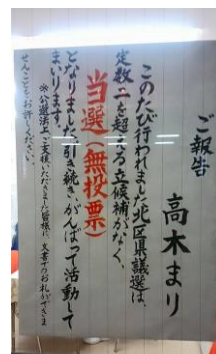 ご報告
高木まり
このたび行われました北区県議選は、
定数二を超える立候補がなく、
当選(無投票)
となりました。引き続き、がんばって活動して
まいります。
※公選法上、ご支援いただきました皆様に、文書でのお礼ができま
せんことをお許しください。